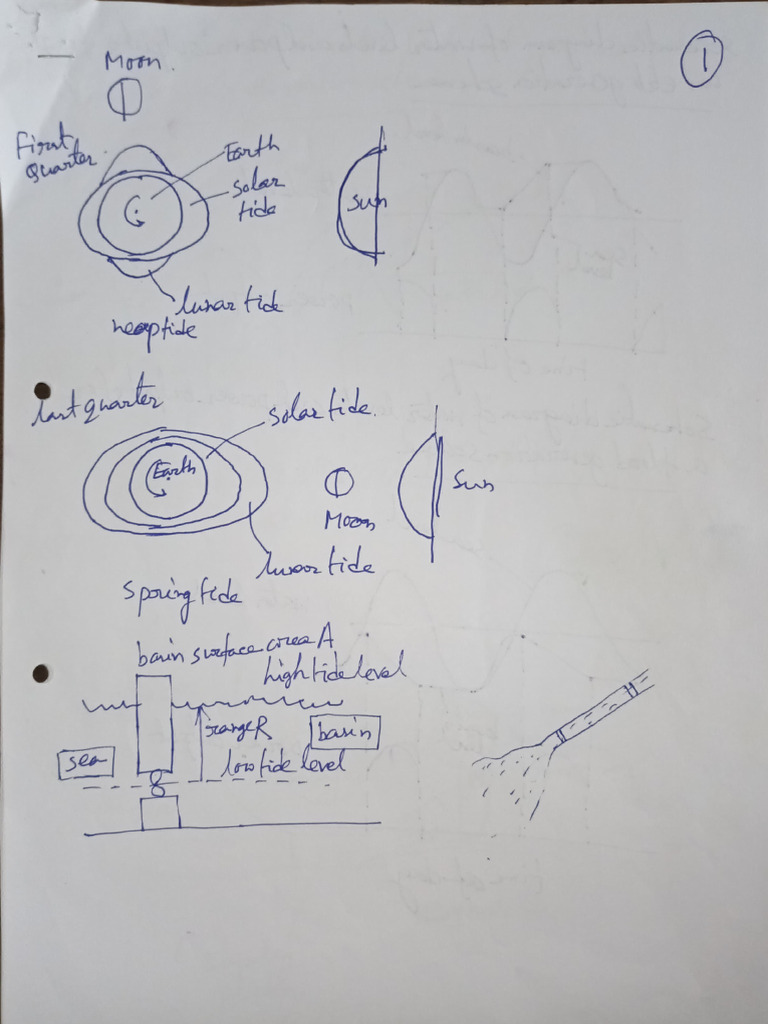 1
Moon.
First
Quarter
Earth
solar
tide
Sun
lunar tide
neaptide
last quarter
solar tide.
Earth
Moon
Sun
lunar tide
spring tide
basin surface area A
high tide level
range R
basin
sea
low tide level